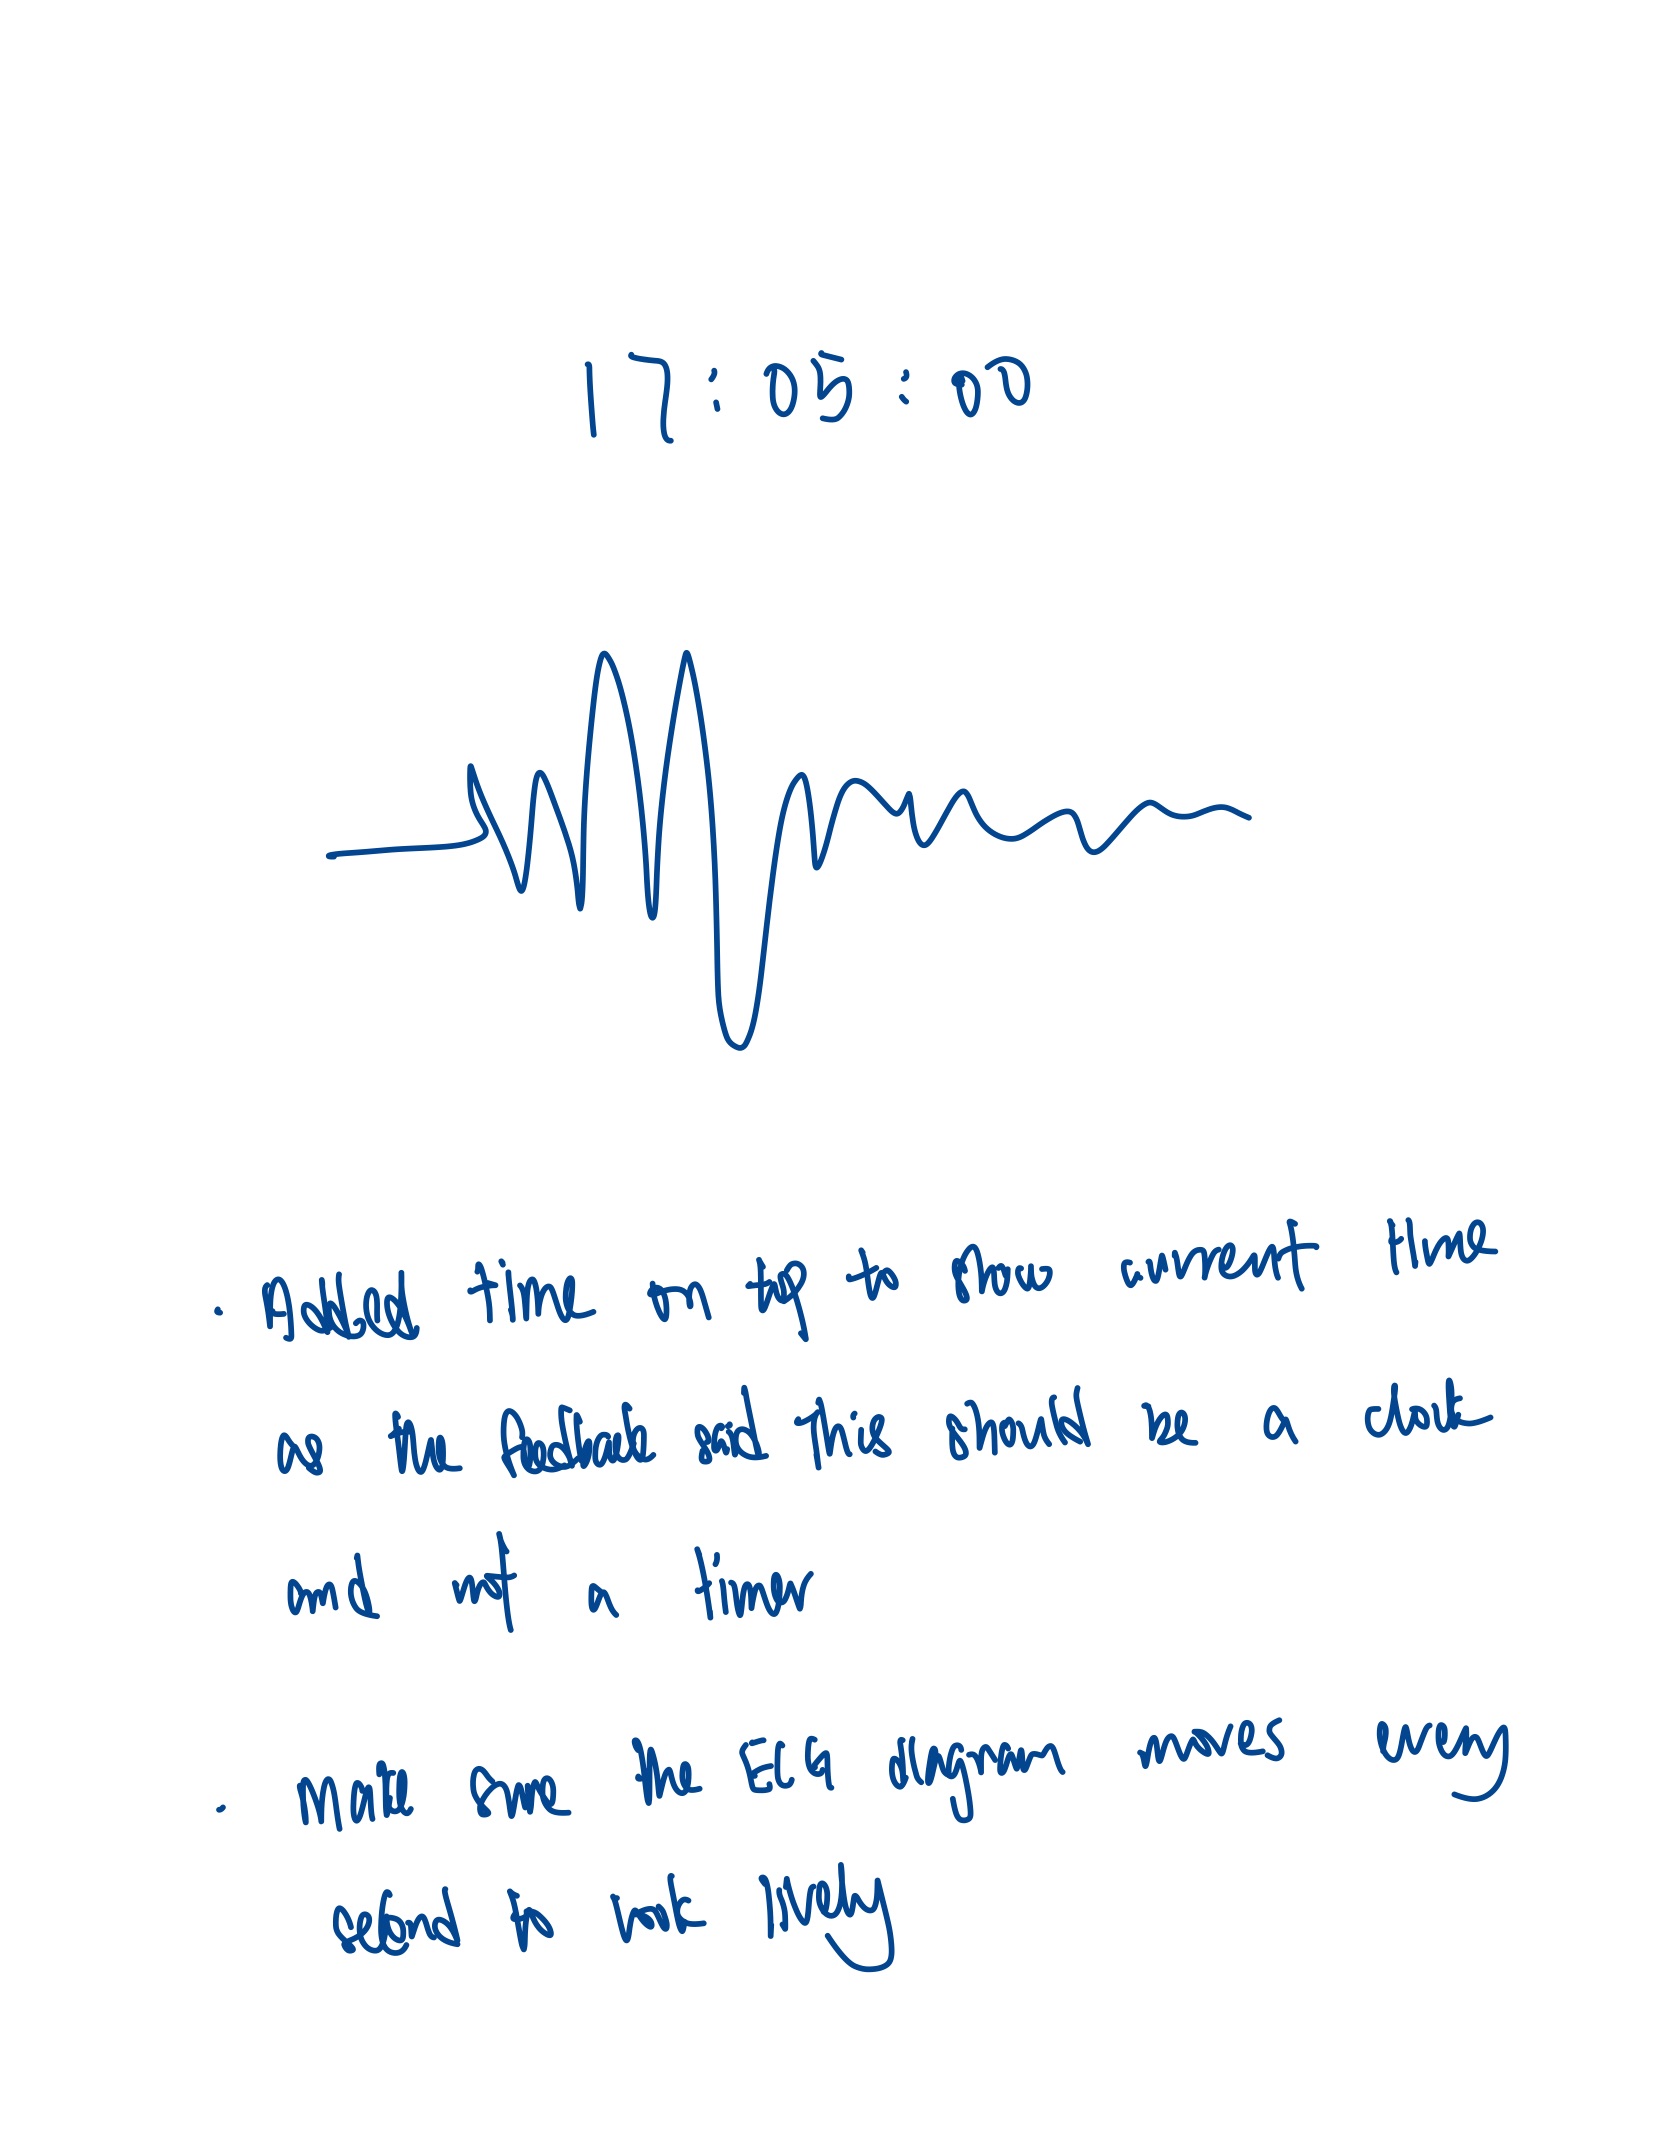 17:05:00
. Added time on top to show current time
as the feedback said this should be a clock
and not a timer
. Make sure the ECG diagram moves every
second to look lively